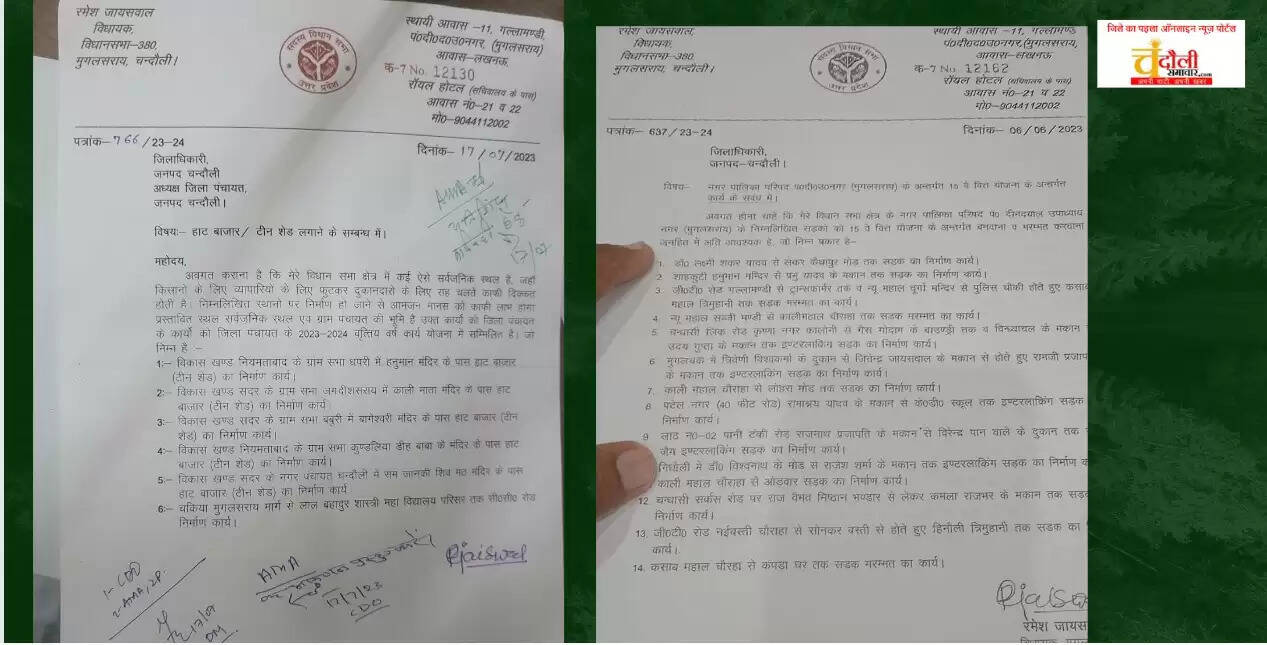 रमेश जायसवाल
विधायक,
विधानसभा–380,
मुगलसराय, चन्दौली।
सदस्य विधान सभा
उत्तर प्रदेश
स्थायी आवास –11, गल्लामण्डी,
पं०दी०द०उ०नगर, (मुगलसराय)
आवास–लखनऊ,
क–7 No. 12130
रॉयल होटल (सचिवालय के पास)
आवास नं०–21 व 22
मो०–9044112002
पत्रांक– 766 / 23–24
दिनांक– 17 / 07 / 2023
जिलाधिकारी,
जनपद चन्दौली
अध्यक्ष जिला पंचायत,
जनपद चन्दौली।
विषयः– हाट बाजार / टीन शेड लगाने के सम्बन्ध में।
महोदय,
अवगत कराना है कि मेरे विधान सभा क्षेत्र में कई ऐसे सर्वजनिक स्थल है, जहाँ
किसानो के लिए व्यापारियो के लिए फुटकर दुकानदारो के लिए राह चलते काफी दिक्कत
होती है। निम्नलिखित स्थानो पर निर्माण हो जाने से आमजन मानस को काफी लाभ होगा
प्रस्तावित स्थल सर्वजनिक स्थल एवं ग्राम पंचायत की भूमि है उक्त कार्यो को जिला पंचायत
के कार्यो को जिला पंचायत के 2023–2024 वृत्तिय वर्ष कार्य योजना में सम्मिलित है। जो
निम्न है :–
1:– विकास खण्ड नियमताबाद के ग्राम सभा धपरी में हनुमान मंदिर के पास हाट बाजार
(टीन शेड) का निर्माण कार्य।
2:– विकास खण्ड सदर के ग्राम सभा जगदीशसराय में काली माता मंदिर के पास हाट
बाजार (टीन शेड) का निर्माण कार्य।
3:– विकास खण्ड सदर के ग्राम सभा बबुरी में बागेश्वरी मंदिर के पास हाट बाजार (टीन
शेड) का निर्माण कार्य।
4:– विकास खण्ड नियमताबाद के ग्राम सभा कुण्डलिया डीह बाबा के मंदिर के पास हाट
बाजार (टीन शेड) का निर्माण कार्य।
5:– विकास खण्ड सदर के नगर पंचायत चन्दौली में राम जानकी शिव मठ मंदिर के पास
हाट बाजार (टीन शेड) का निर्माण कार्य
6:– चकिया मुगलसराय मार्ग से लाल बहादुर शास्त्री महा विद्यालय परिसर तक सी०सी० रोड
निर्माण कार्य।
17/07
1- CDO
2- AMA, ZP
17/07
DM
AMA
17/7/23
CDO
Rjaiswal
रमेश जायसवाल,
विधायक,
विधानसभा–380,
मुगलसराय, चन्दौली।
सदस्य विधान सभा
उत्तर प्रदेश
स्थायी आवास –11, गल्लामण्डी
पं०दी०द०उ०नगर, (मुगलसराय)
आवास–लखनऊ
क–7 No. 12162
रॉयल होटल (सचिवालय के पास)
आवास नं०–21 व 22
मो०–9044112002
पत्रांक– 637 / 23–24
दिनांक– 06 / 06 / 2023
जिलाधिकारी,
जनपद–चन्दौली।
विषय– नगर पालिका परिषद पं०दी०उ०नगर (मुगलसराय) के अन्तर्गत 15 वे वित्त योजना के अन्तर्गत
कार्य के संबंध में।
अवगत होना चाहे कि मेरे विधान सभा क्षेत्र के नगर पालिका परिषद पं० दीनदयाल उपाध्याय
नगर (मुगलसराय) के निम्नलिखित सडको को 15 वे वित्त योजना के अन्तर्गत बनवाना व मरम्मत करवाना
जनहित में अति आवश्यक है, जो निम्न प्रकार है–
1. डॉ० लक्ष्मी शंकर यादव से लेकर कैथापुर मोड तक सडक का निर्माण कार्य।
2. शाहकुटी हनुमान मन्दिर से प्रभु यादव के मकान तक सडक का निर्माण कार्य।
3. जी०टी० रोड गल्लामण्डी से ट्रान्सफार्मर तक व न्यू महाल दुर्गा मन्दिर से पुलिस चौकी होते हुए कसाब
महाल त्रिमुहानी तक सडक मरम्मत का कार्य।
4. न्यू महाल सब्जी मण्डी से कालीमहाल चौराहा तक सडक मरम्मत का कार्य।
5. चन्धासी लिंक रोड कृष्णा नगर कालोनी से गैस गोदाम के बाउण्ड्री तक व विन्ध्याचल के मकान
उदय गुप्ता के मकान तक इण्टरलाकिंग सडक का निर्माण कार्य।
6. मुगलचक में त्रिवेणी विश्वकर्मा के दुकान से जितेन्द्र जायसवाल के मकान से होते हुए रामजी प्रजाप
के मकान तक इण्टरलाकिंग सडक का निर्माण कार्य।
7. काली महाल चौराहा से लोहरा मोड तक सडक का निर्माण कार्य।
8. पटेल नगर (40 फीट रोड) रामाश्रय यादव के मकान से के०डी० स्कूल तक इण्टरलाकिंग सडक
निर्माण कार्य।
9. लाठ नं०–02 पानी टंकी रोड राजनाथ प्रजापति के मकान से विरेन्द्र पान वाले के दुकान तक
इण्टरलाकिंग सडक का निर्माण कार्य।
में डॉ० विश्वनाथ के मोड से राजेश शर्मा के मकान तक इण्टरलाकिंग सडक का निर्माण का
काली महाल चौराहा से ओडवार सडक का निर्माण कार्य।
12. चन्धासी सर्कस रोड पर राज वैभव मिष्ठान भण्डार से लेकर कमला राजभर के मकान तक सडक
निर्माण कार्य।
13. जी०टी० रोड नईबस्ती चौराहा से सोनकर बस्ती से होते हुए हिनौली त्रिमुहानी तक सडक का
कार्य।
14. कसाब महाल चौरहा से कपडा घर तक सडक मरम्मत का कार्य।
Rjaisw
रमेश जायस
जिले का पहला ऑनलाइन न्यूज़ पोर्टल
चंदौली
समाचार.com
अपनी माटी, अपनी खबर